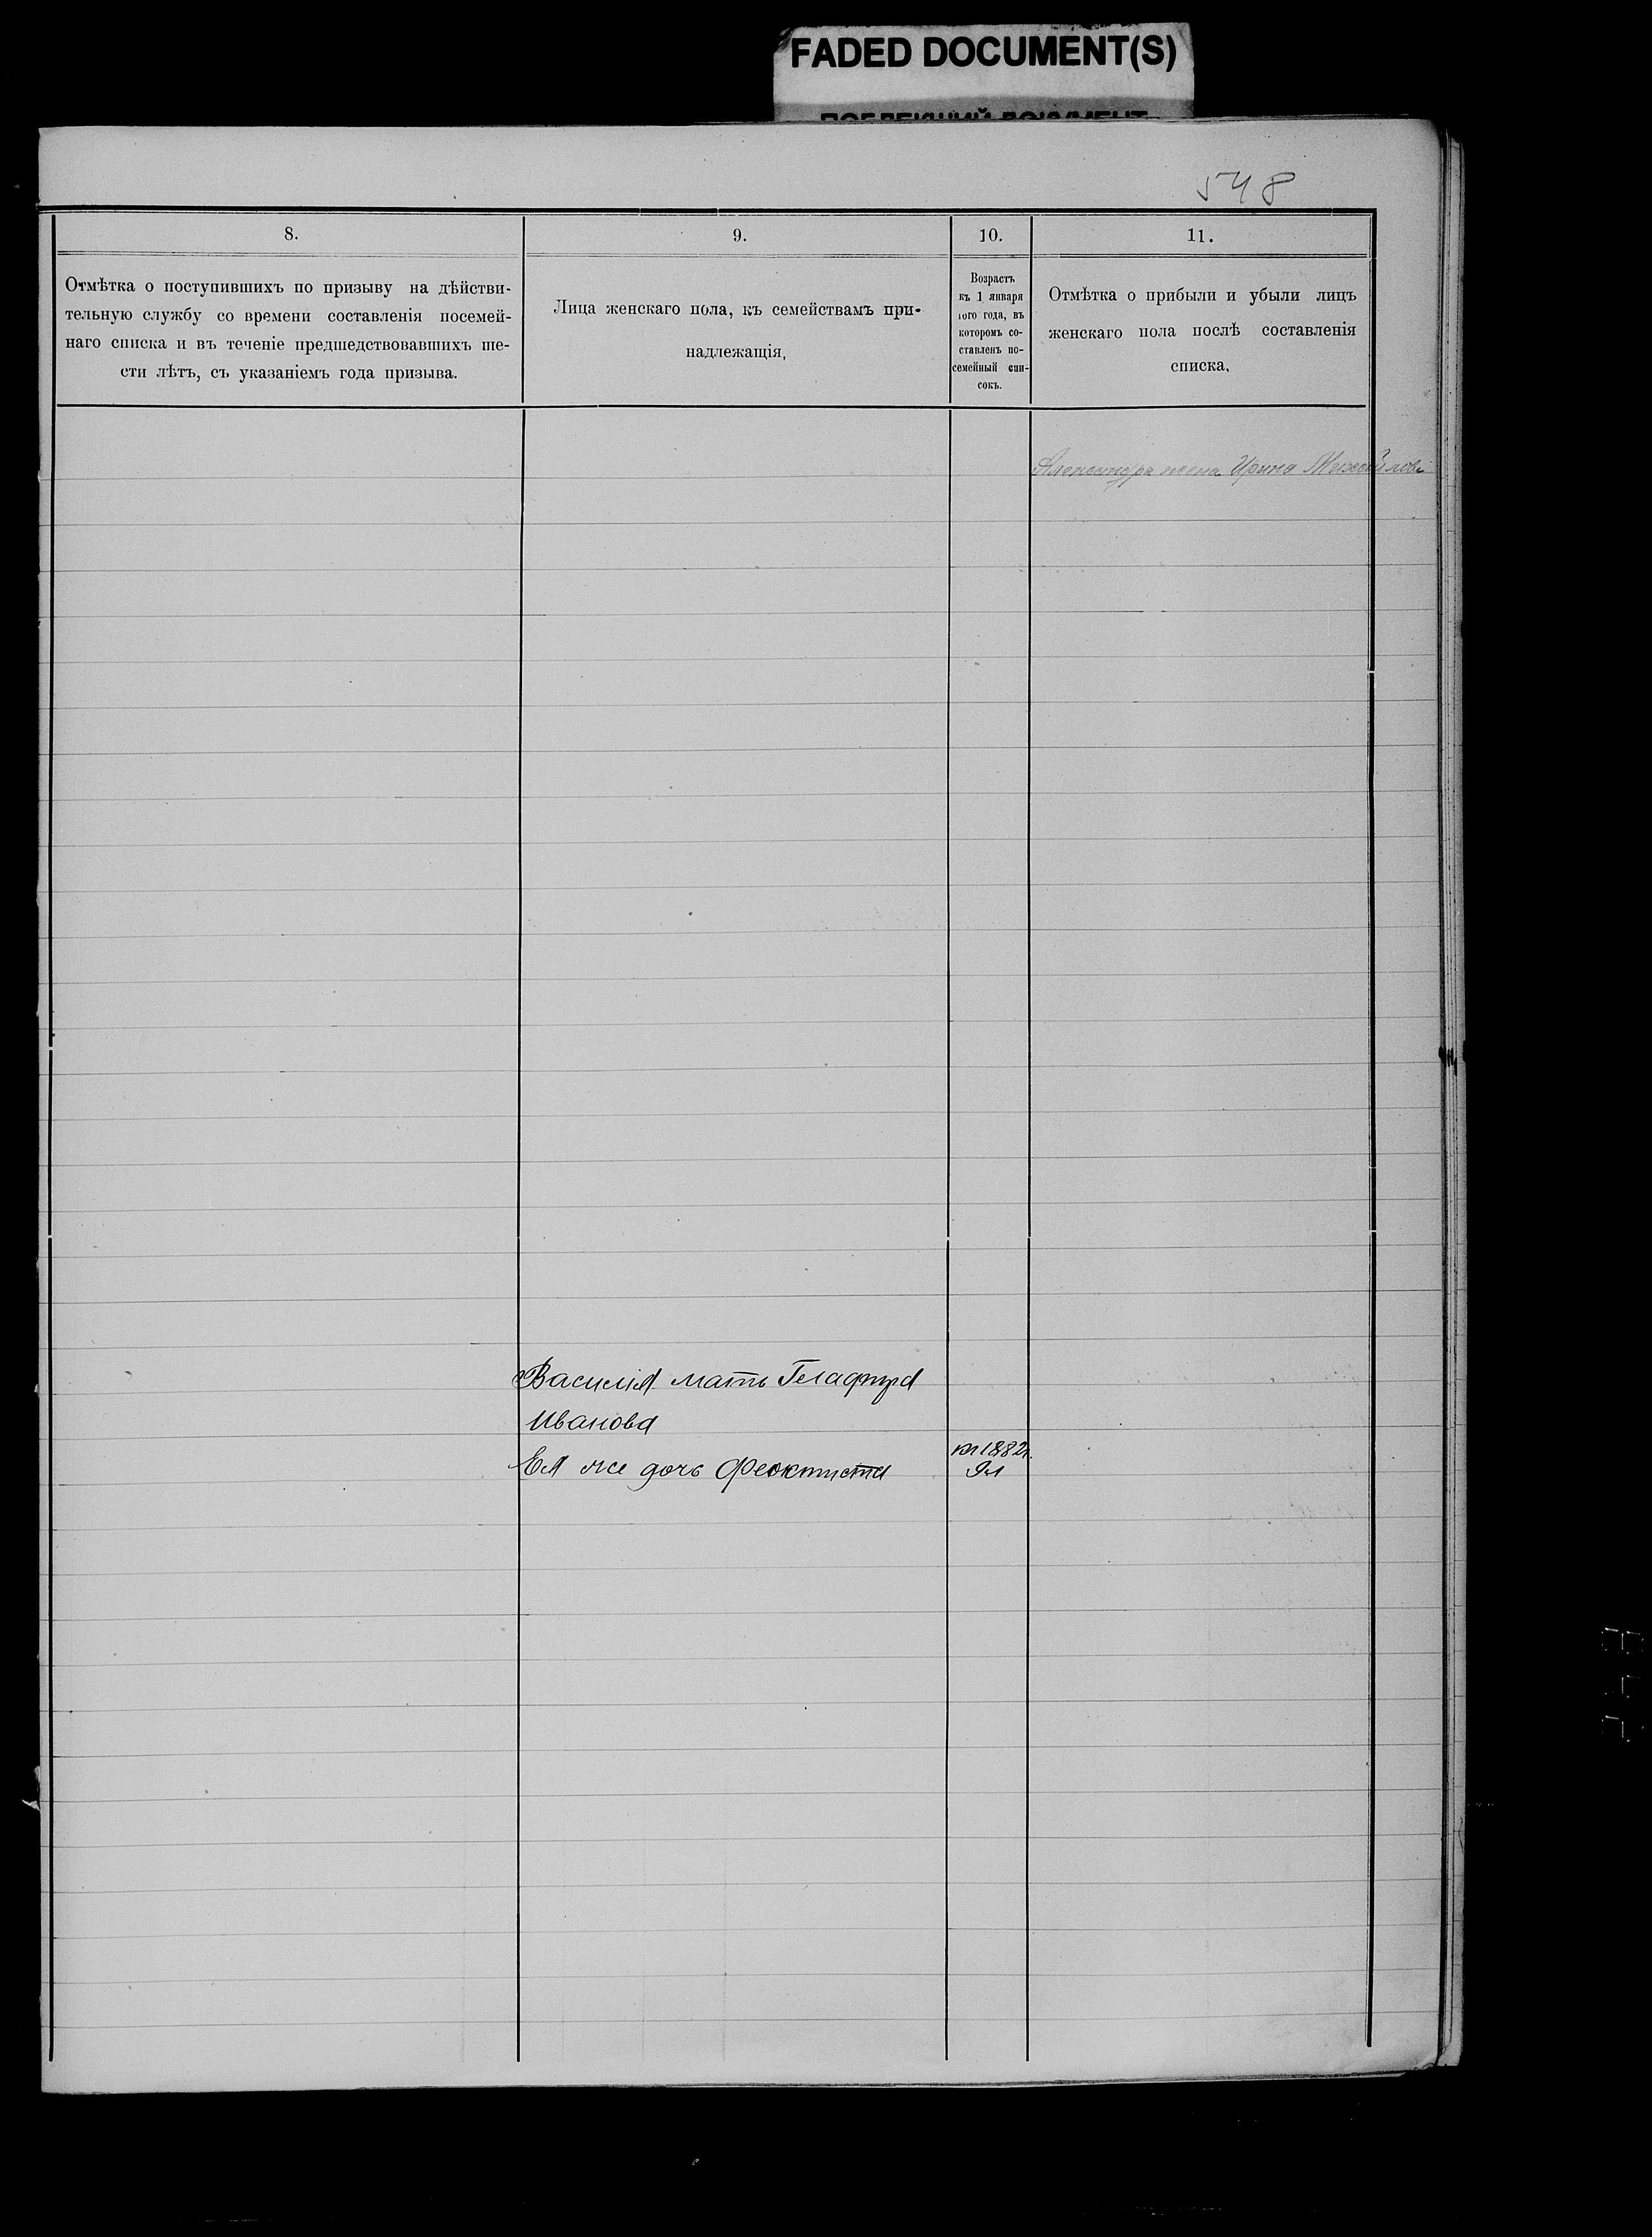 FADED DOCUMENT(S)
ПОБЛЕКШИЙ ДОКУМЕНТ
548
8.
9.
10.
11.
Отмѣтка о поступившихъ по призыву на дѣйстви-
тельную службу со времени составленія посемей-
наго списка и въ теченіе предшедствовавшихъ ше-
сти лѣтъ, съ указаніемъ года призыва.
Лица женскаго пола, къ семействамъ при-
надлежащія,
Возрастъ
къ 1 января
того года, въ
которомъ со-
ставленъ по-
семейный спи-
сокъ.
Отмѣтка о прибыли и убыли лицъ
женскаго пола послѣ составленія
списка,
Александра жена Ирина Михайлова
Василія мать Гелафира
Иванова
Ея же дочь Феоктиста
1882г.